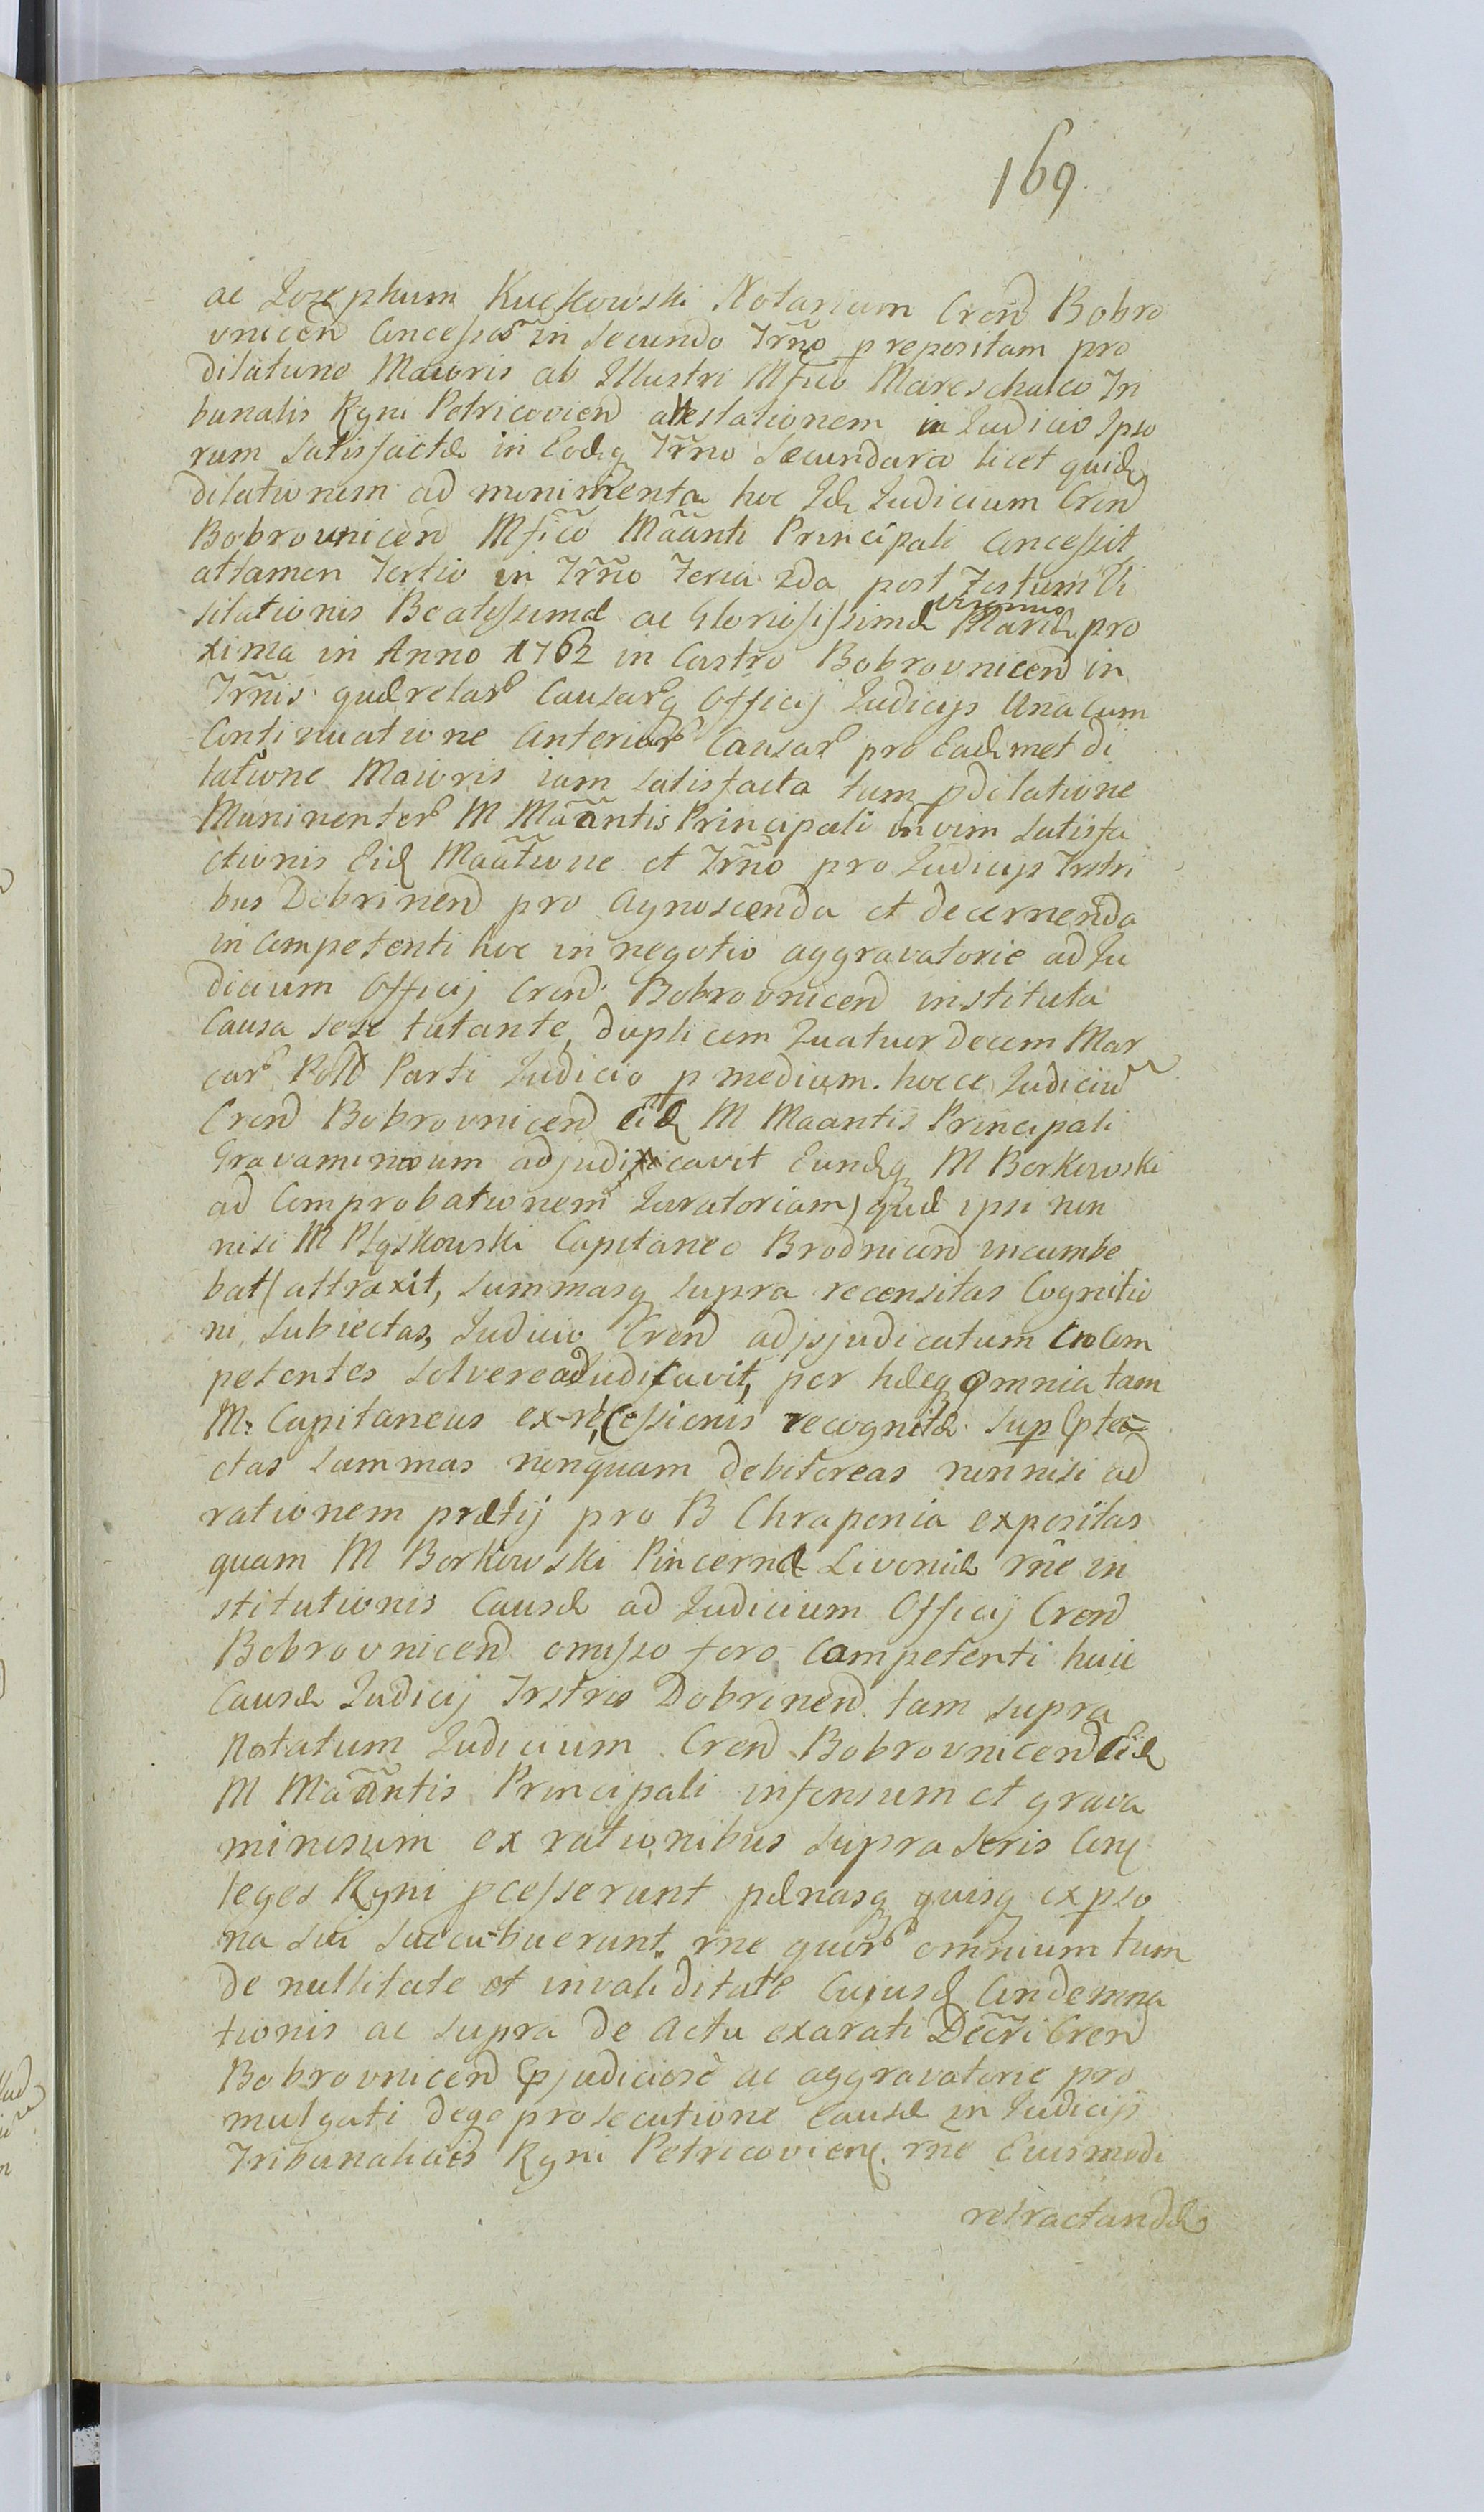 169.
ac Josephum Kuczkowski Notarium Crens Bobro
vnicen concessas in secundo Trno prepositam pro
dilatione Maioris ab Illustri Mfico Mareschalco Tri
bunalis Rgni Petricovien attestationem in Judicio Ipso
rum satisfactæ in Eodq Trno secundario licet quid
dilationem ad munimenta hoc Id Judicium Cren
Bobrovnicen Mfico Maanti Principali concessit
attamen Tertio in Trno Feria 2da post Festum Vi
sitationis Beatissimæ ac Gloriosissimæ Virginis Mariæ pro
xima in Anno 1762 in Castro Bobrovnicen in
Trnis querelar Causarq Officij Judicijs Una cum
Continuatione Anterior Causar pro Eademet di
latione Maioris iam satisfacta tum pdilatione
Munimentor M Maantis Principali in vim satisfa
ctionis Eid Maatione et Trno pro Judicijs Trstri
bus Dobrinen pro agnoscenda et decernenda
in competenti hoc in negotio aggravatorie ad Ju
dicium Officij Cren Bobrovnicen instituta
Causa sese tutante, duplicem Quatuordecem Mar
car Poll Parti Judicio p medium hocce Judiciu
Cren Bobrovnicen Eid M Maantis Principali
Gravaminoum adjudicavit Eundq M Borkowski
ad Comprobationem Juratoriam) quæ ipsi non
nisi M Pląskowski Capitaneo Brodnicen incumbe
bat( attraxit, summasq supra recensitas Cognitio
ni subiectas, Judicio Cren adjsjudicatum Crocom
petentes solvere adjudicavit, per hæcq omnia tam
M: Capitaneus ex recessionis recognitæ sup Epta
ctas summas nunquam debitoreas non nisi ad
rationem prætij pro B Chraponia expositas
quam M Borkowski Pincernæ Livoniæ rne in
stitutionis Causæ ad Judicium Officij Cren
Bobrovnicen omisso foro Competenti huic
Causæ Judicij Trstris Dobrinen tam supra
Notatum Judicium Cren Bobrovnicen Eid
M Maantis Principali infensum et grava
minosum ex rationibus supra seris Con
leges Rgni pcesserunt pænasq quisq ex pso
na sui succubuerunt rne quor omnium tum
de nullitate et invaliditate Cuiusd Condemna
tionis ac supra de Actu exarati Decri Cren
Bobrovnicen pjudiciose ac aggravatorie pro
mulgati deqe prosecutione Causæ in Judicijs
Tribunalicijs Rgni Petricovien rne Eiusmodi
retractandæ